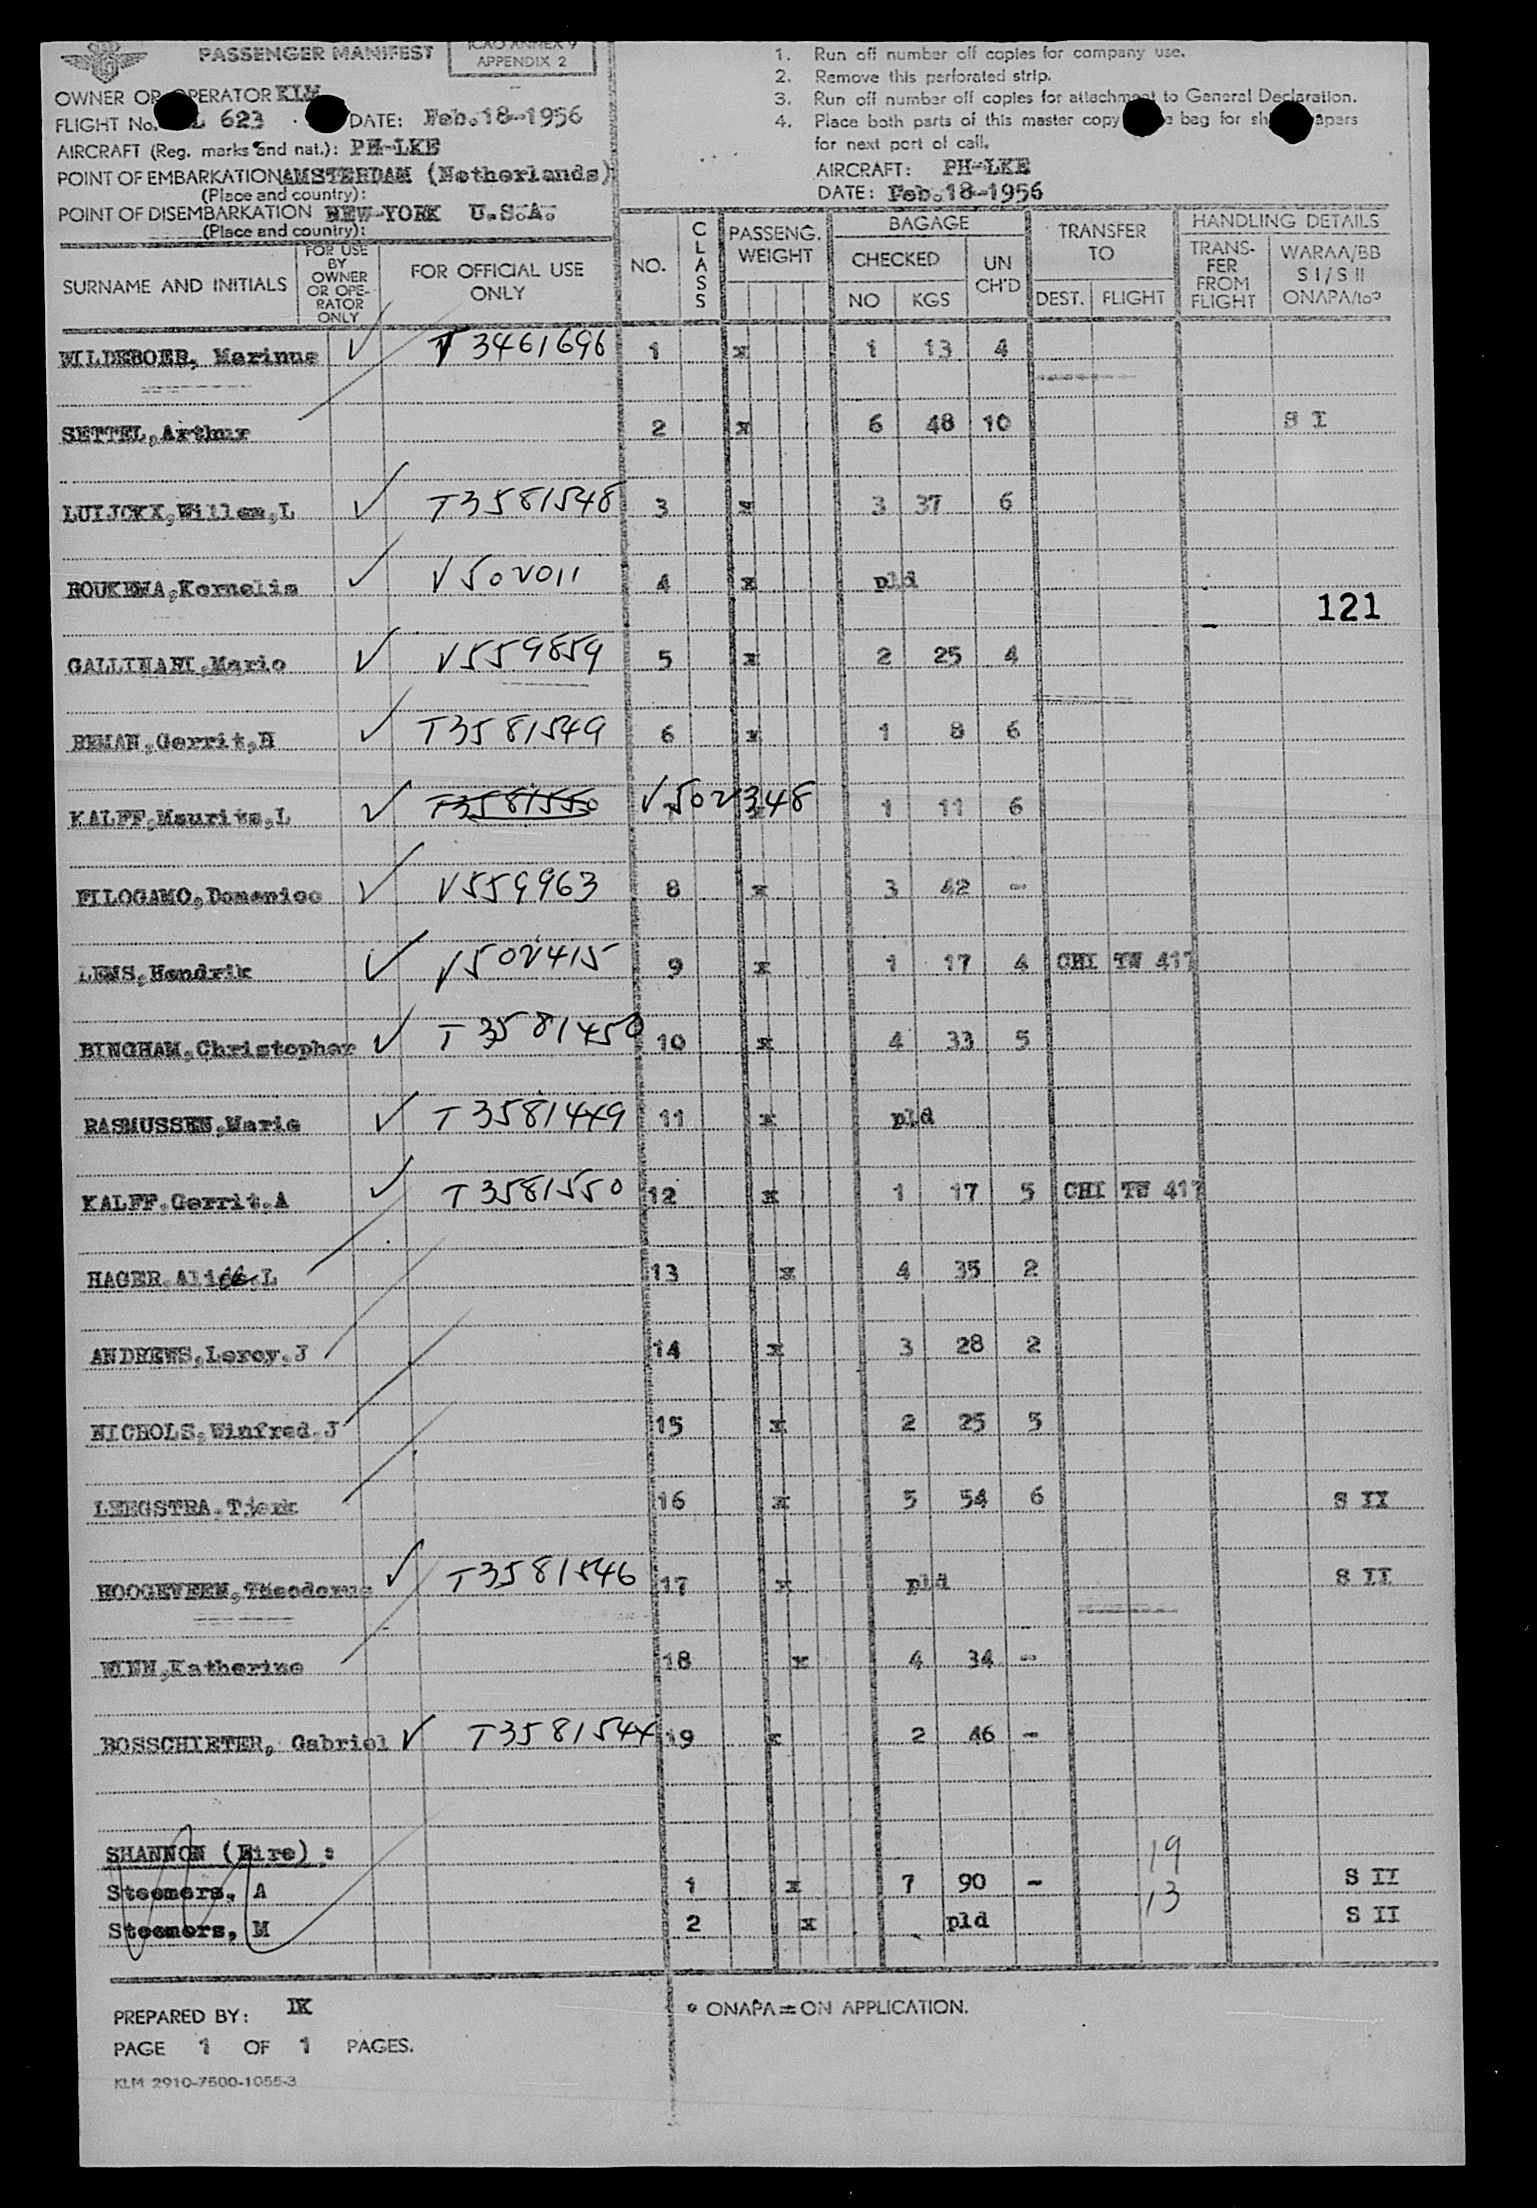 PASSENGER MANIFEST
ICAO ANNEX 9
APPENDIX 2
OWNER OR OPERATOR KLM
FLIGHT No. L 623 DATE: Feb.18-1956
AIRCRAFT (Reg. marks and nat.): PH-LKE
POINT OF EMBARKATION AMSTERDAM (Netherlands)
(Place and country):
POINT OF DISEMBARKATION NEW-YORK U.S.A.
(Place and country):
1. Run off number off copies for company use.
2. Remove this perforated strip.
3. Run off number off copies for attachment to General Declaration.
4. Place both parts of this master copy bag for papers
for next port of call.
AIRCRAFT: PH-LKE
DATE: Feb.18-1956
SURNAME AND INITIALS
FOR USE BY OWNER OR OPE-RATOR ONLY
FOR OFFICIAL USE ONLY
NO.
CLASS
PASSENG. WEIGHT
BAGAGE
CHECKED
NO KGS
UN CH'D
TRANSFER TO
DEST. FLIGHT
HANDLING DETAILS
TRANS-FER FROM FLIGHT
WARAA/BB
S I / S II
ONAPA/to
WILDEBOER, Marinus ✓ T 3461696 1 x 1 13 4
SETTEL,Arthur 2 x 6 48 10 S I
LUIJCKX,Willem,L ✓ T3581548 3 x 3 37 6
BOUKEMA,Kornelis ✓ V502011 4 x pld
121
GALLINARI,Mario ✓ V559859 5 x 2 25 4
BEMAN,Gerrit,H ✓ T3581549 6 x 1 8 6
KALFF,Maurits,L ✓ T3581550 V502348 7 x 1 11 6
FILOGAMO,Domenico ✓ V559963 8 x 3 42 -
LENS,Hendrik ✓ V502415 9 x 1 17 4 CHI TW 417
BINGHAM,Christopher ✓ T3581450 10 x 4 33 5
RASMUSSEN,Marie ✓ T3581449 11 x pld
KALFF.Gerrit.A ✓ T3581550 12 x 1 17 5 CHI TW 417
HAGER.Alice.L 13 x 4 35 2
ANDREWS.Leroy.J 14 x 3 28 2
NICHOLS.Winfred.J 15 x 2 25 5
LEEGSTRA.Tjerk 16 x 5 54 6 S II
HOOGEVEEN,Theodorus ✓ T3581546 17 x pld S II
WINN,Katherine 18 x 4 34 -
BOSSCHIETER, Gabriel ✓ T3581544 19 x 2 46 -
SHANNON (Eire) : 19
Steemers, A 1 x 7 90 - 13 S II
Steemers, M 2 x pld S II
PREPARED BY: IK
* ONAPA = ON APPLICATION.
PAGE 1 OF 1 PAGES.
KLM 2910-7500-1055-3